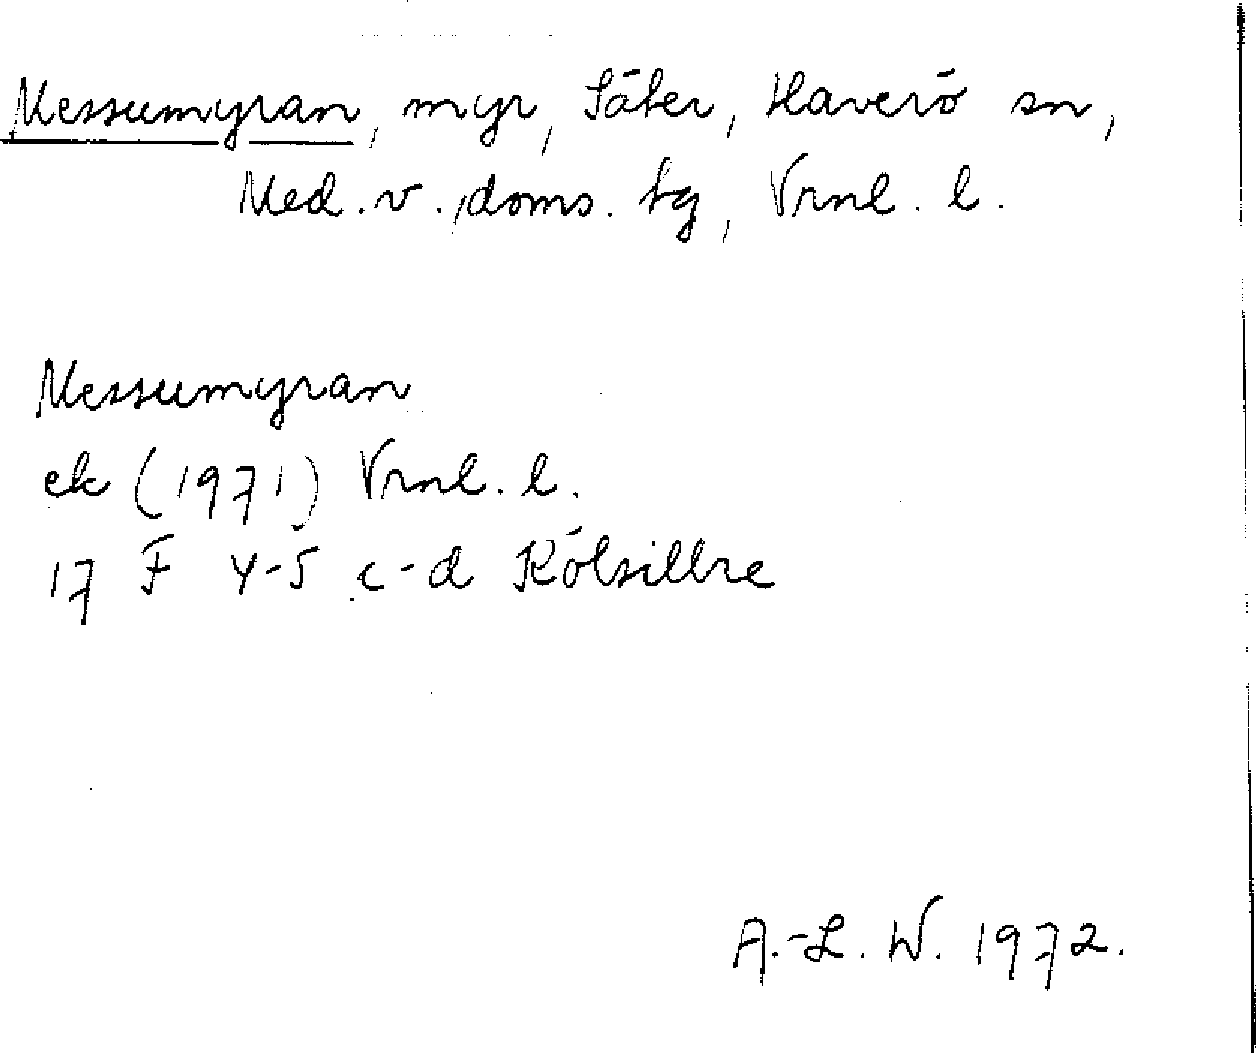 Messumyran, myr, Säter, Haverö sn,
Med. v., doms. tg, Vrnl. l.
Messumyran
ek (1971) Vrnl. l.
17 F 4-5 c-d Kölsillre
A.-L. W. 1972.